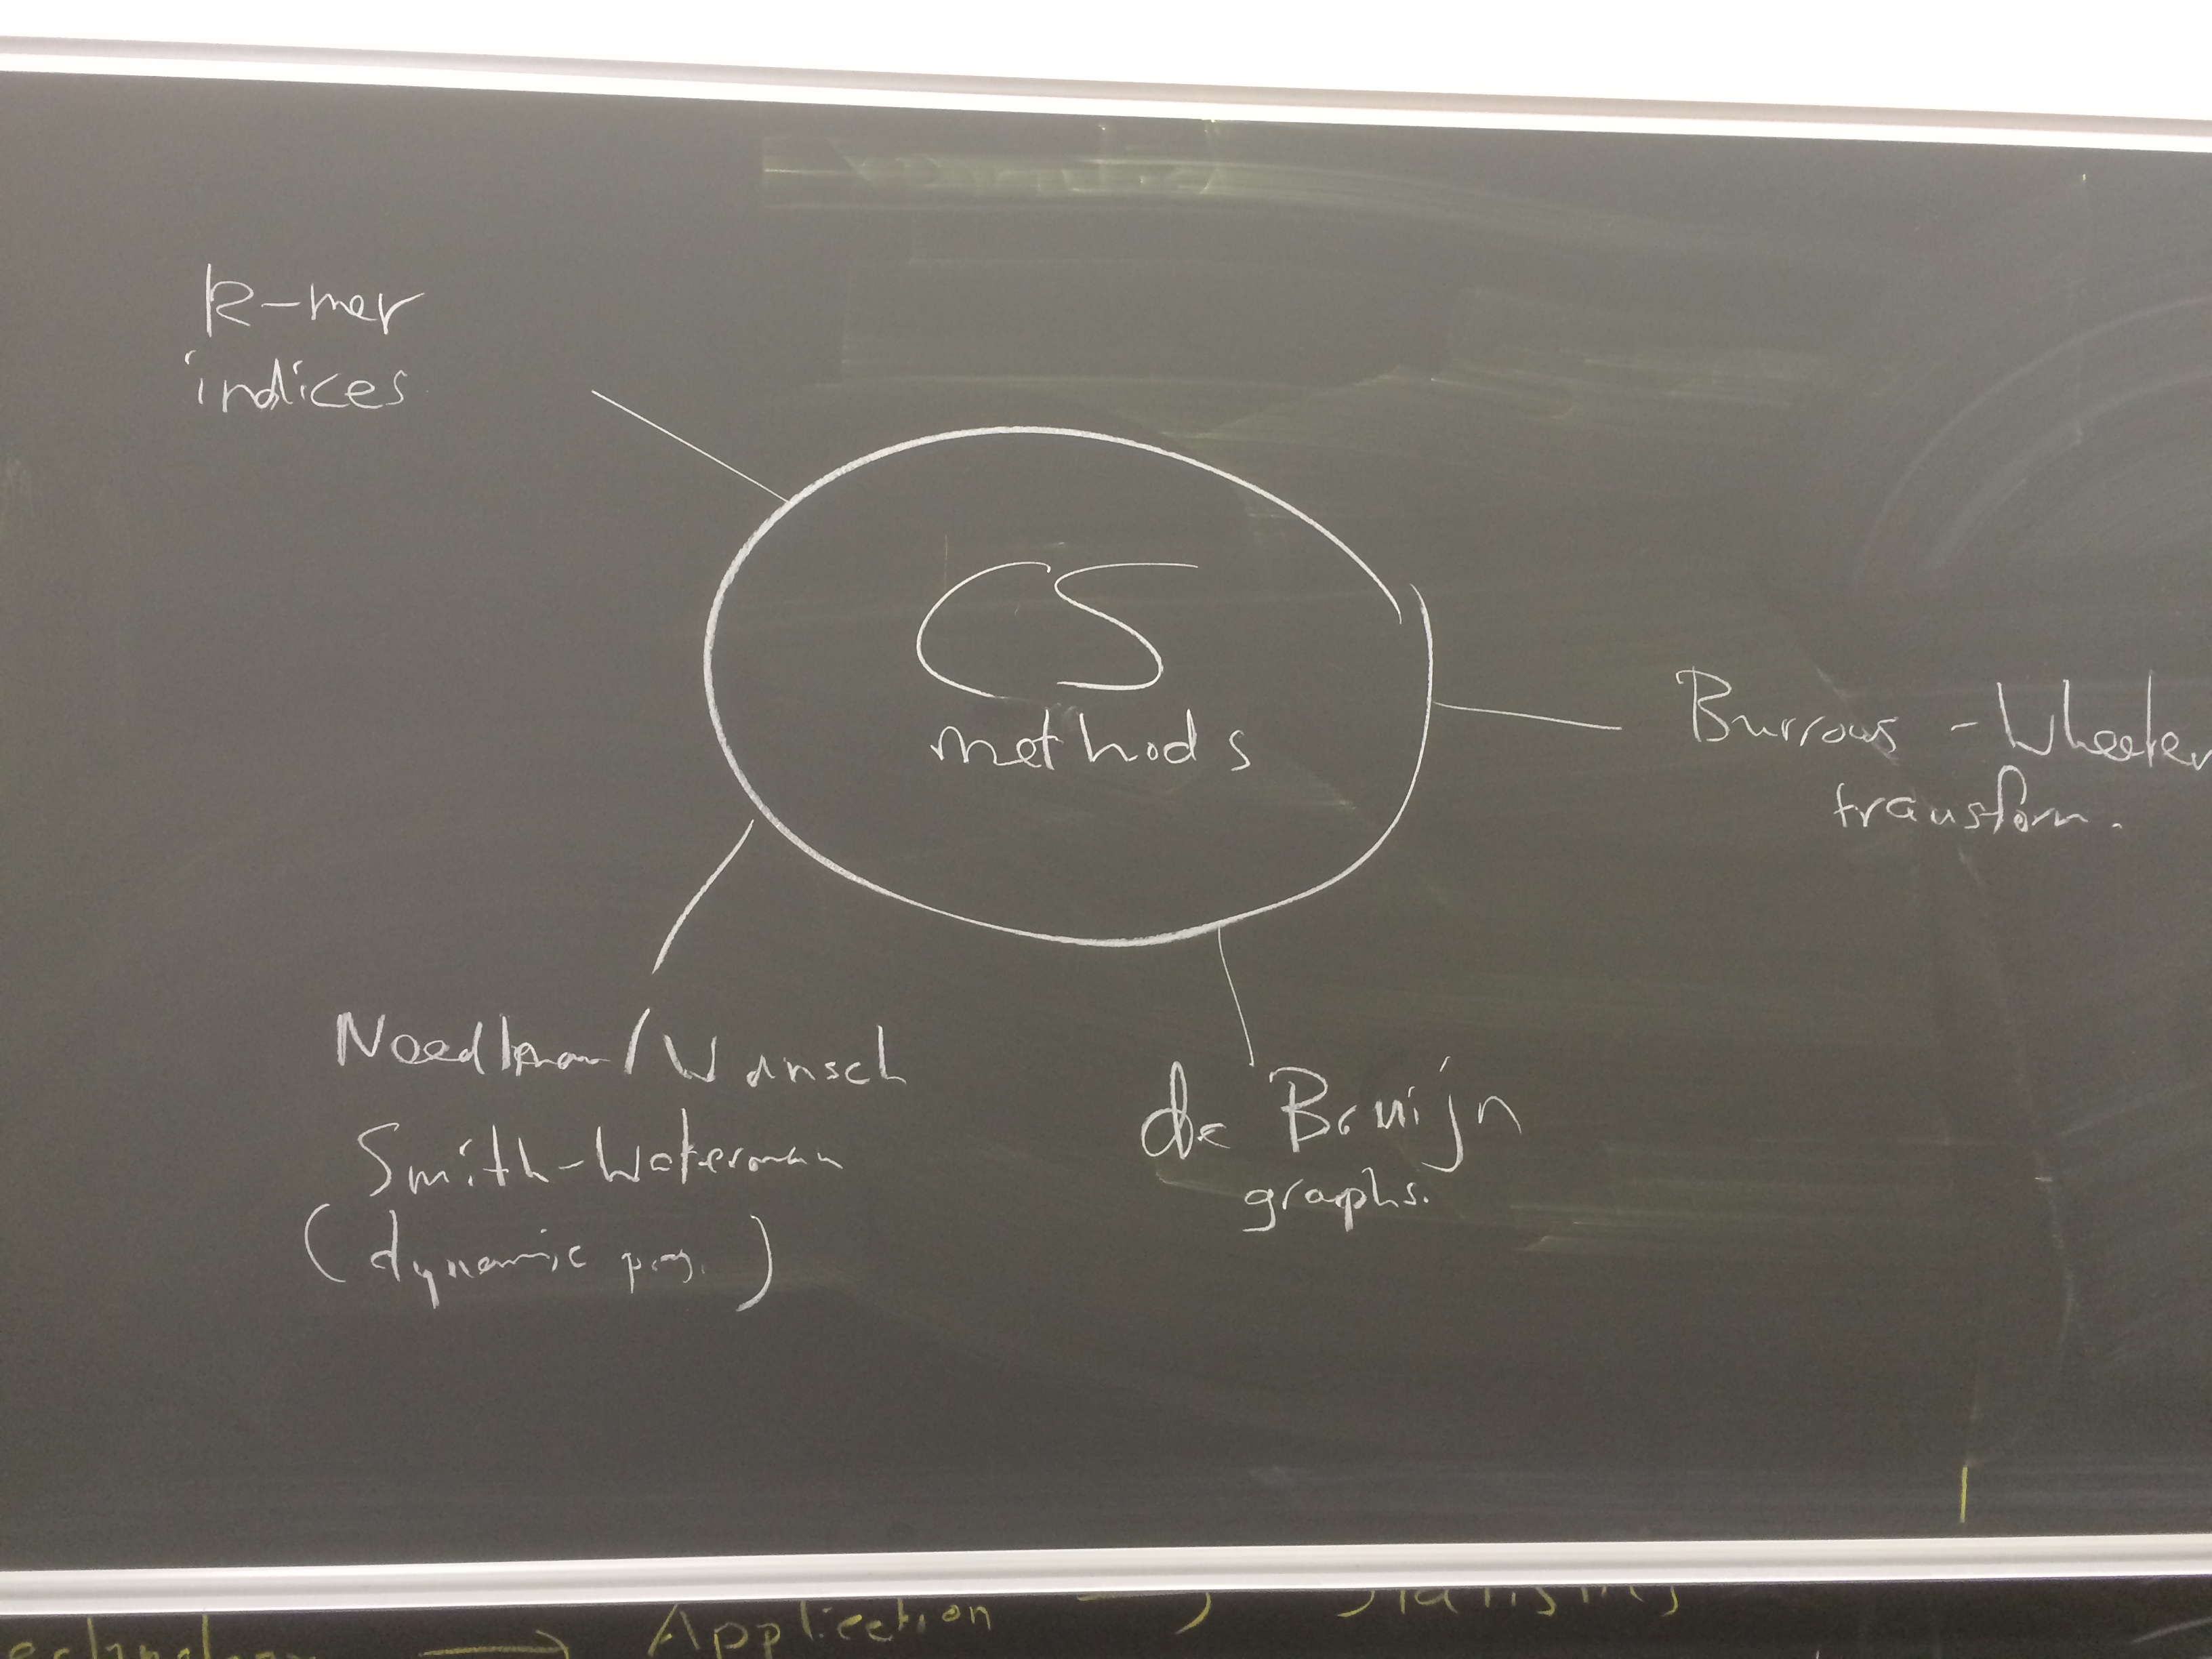 k-mer
indices
CS
methods
Burrows - Wheeler
transform.
Needleman/Wunsch
Smith-Waterman
(dynamic prog.)
de Bruijn
graphs.
Technology → Application → Statistics